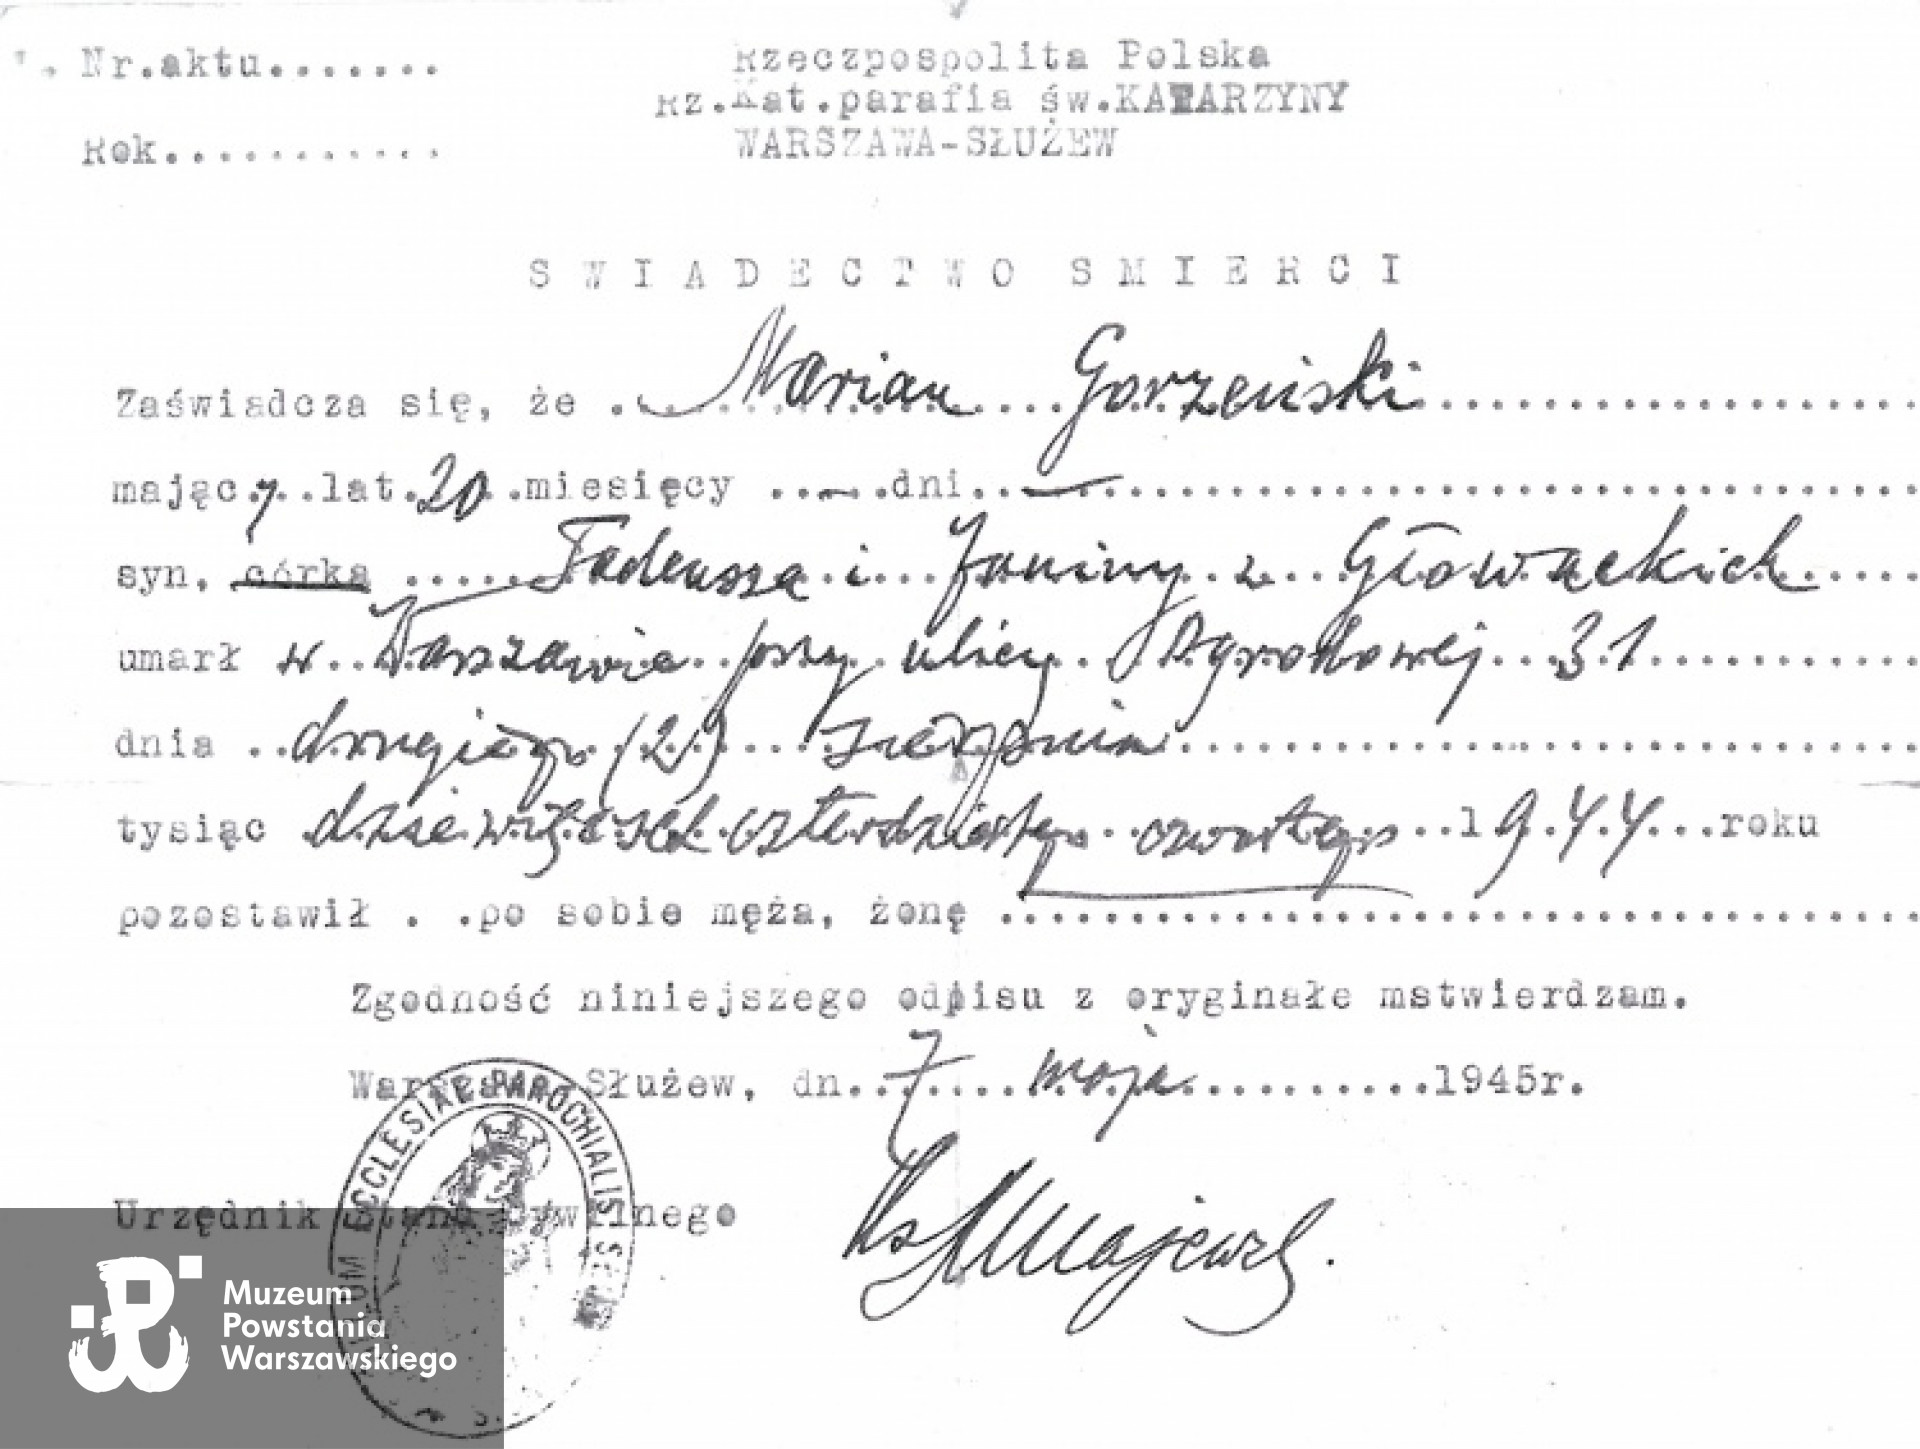 Nr.aktu.......
Rzeczpospolita Polska
Rz.Kat.parafia św.KATARZYNY
Rok...........
WARSZAWA-SŁUŻEW
SWIADECTWO SMIERCI
Zaświadcza się, że Marian Gorzeński
mający lat 20 miesięcy — dni —
syn, córka Tadeusza i Janiny z Głowackich
umarł w Warszawie przy ulicy Agrokowej 31
dnia drugiego (2) sierpnia
tysiąc dziewięćset czterdziestego czwartego 1944 roku
pozostawił . .po sobie męża, żonę
Zgodność niniejszego odpisu z oryginałe mstwierdzam.
Warszawa Służew, dn. 7 maja 1945r.
Urzędnik Stanu Cywilnego
Ks Majewsk.
ECCLESIAE PAROCHIALIS
Muzeum
Powstania
Warszawskiego